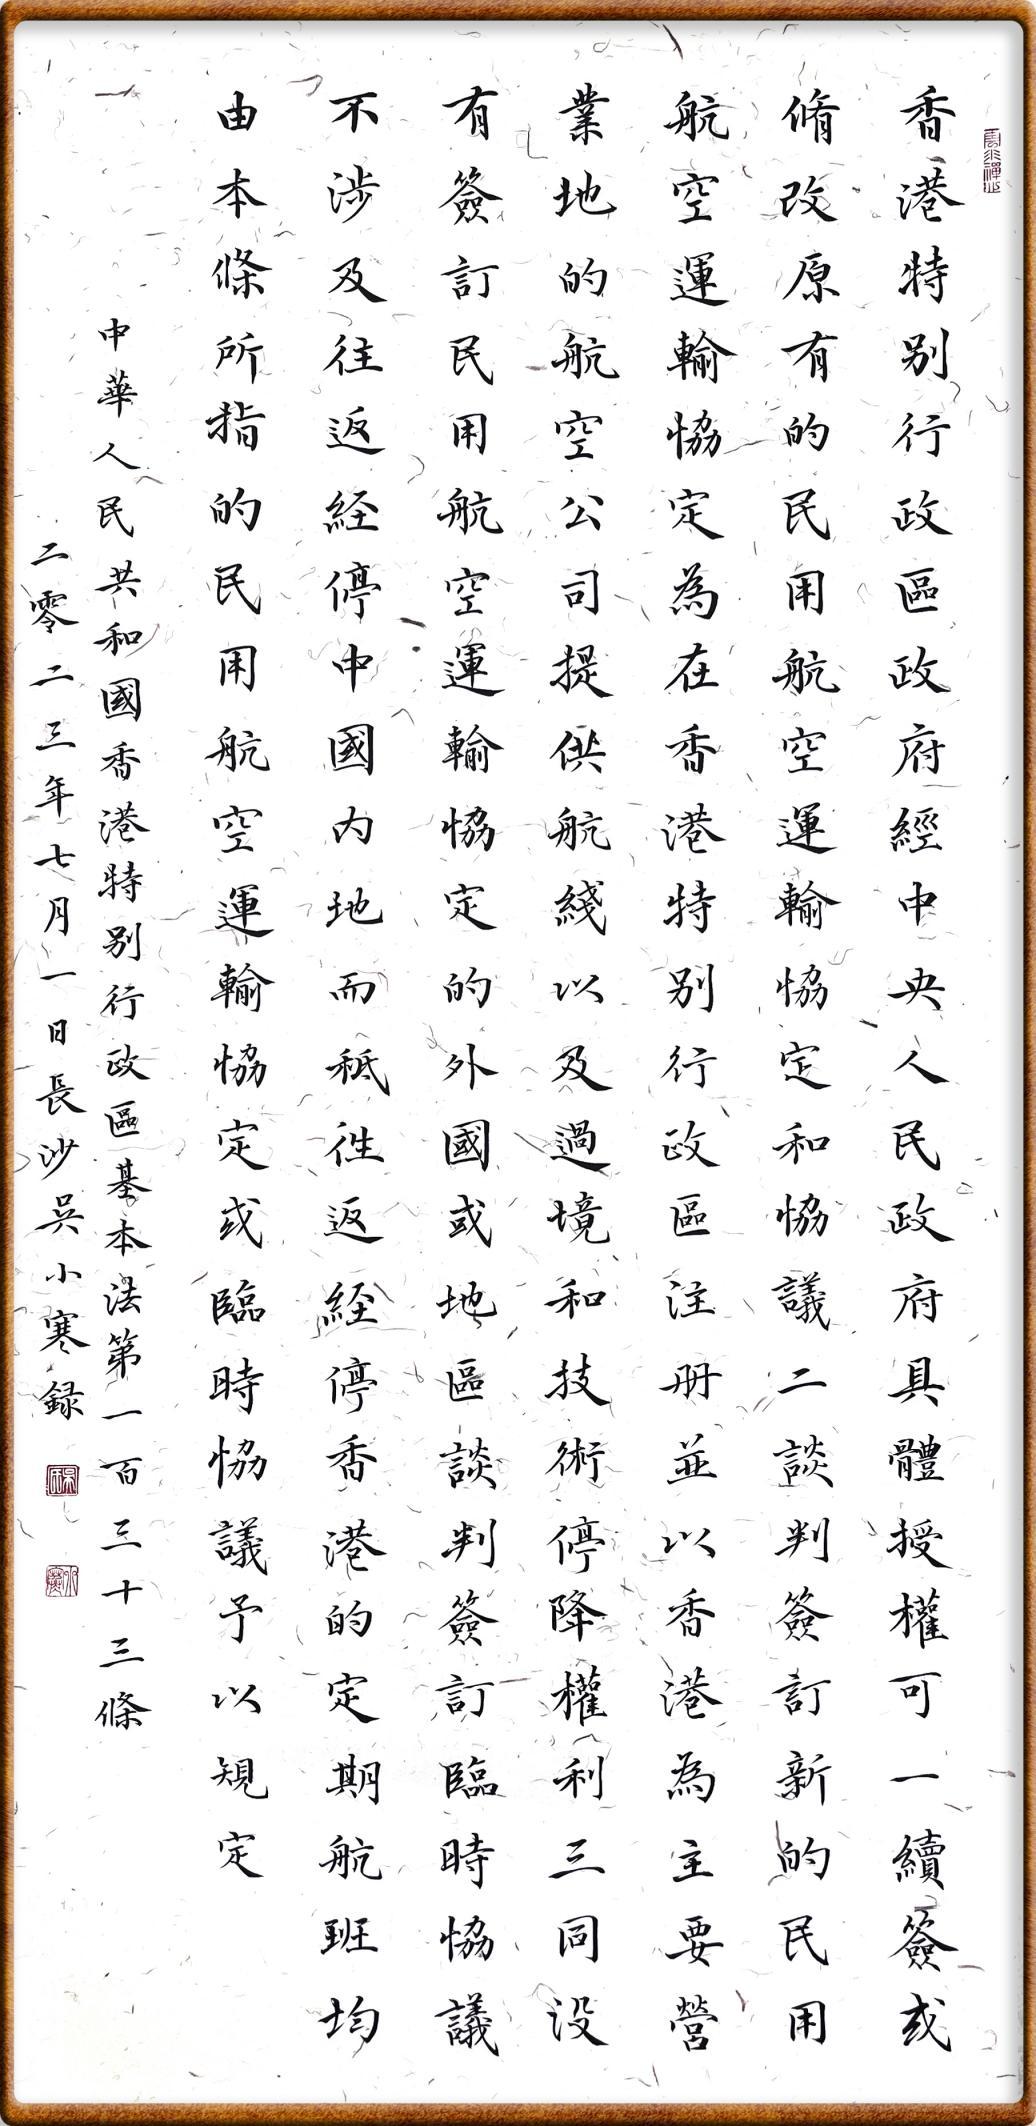 香港特别行政區政府經中央人民政府具體授權可一續簽或
脩改原有的民用航空運輸協定和協議二談判簽訂新的民用
航空運輸協定為在香港特别行政區注册並以香港為主要營
業地的航空公司提供航綫以及過境和技術停降權利三同没
有簽訂民用航空運輸協定的外國或地區談判簽訂臨時協議
不涉及往返経停中國内地而秪往返経停香港的定期航班均
由本條所指的民用航空運輸協定或臨時協議予以規定
中華人民共和國香港特别行政區基本法第一百三十三條
二零二三年七月一日長沙吴小寒録